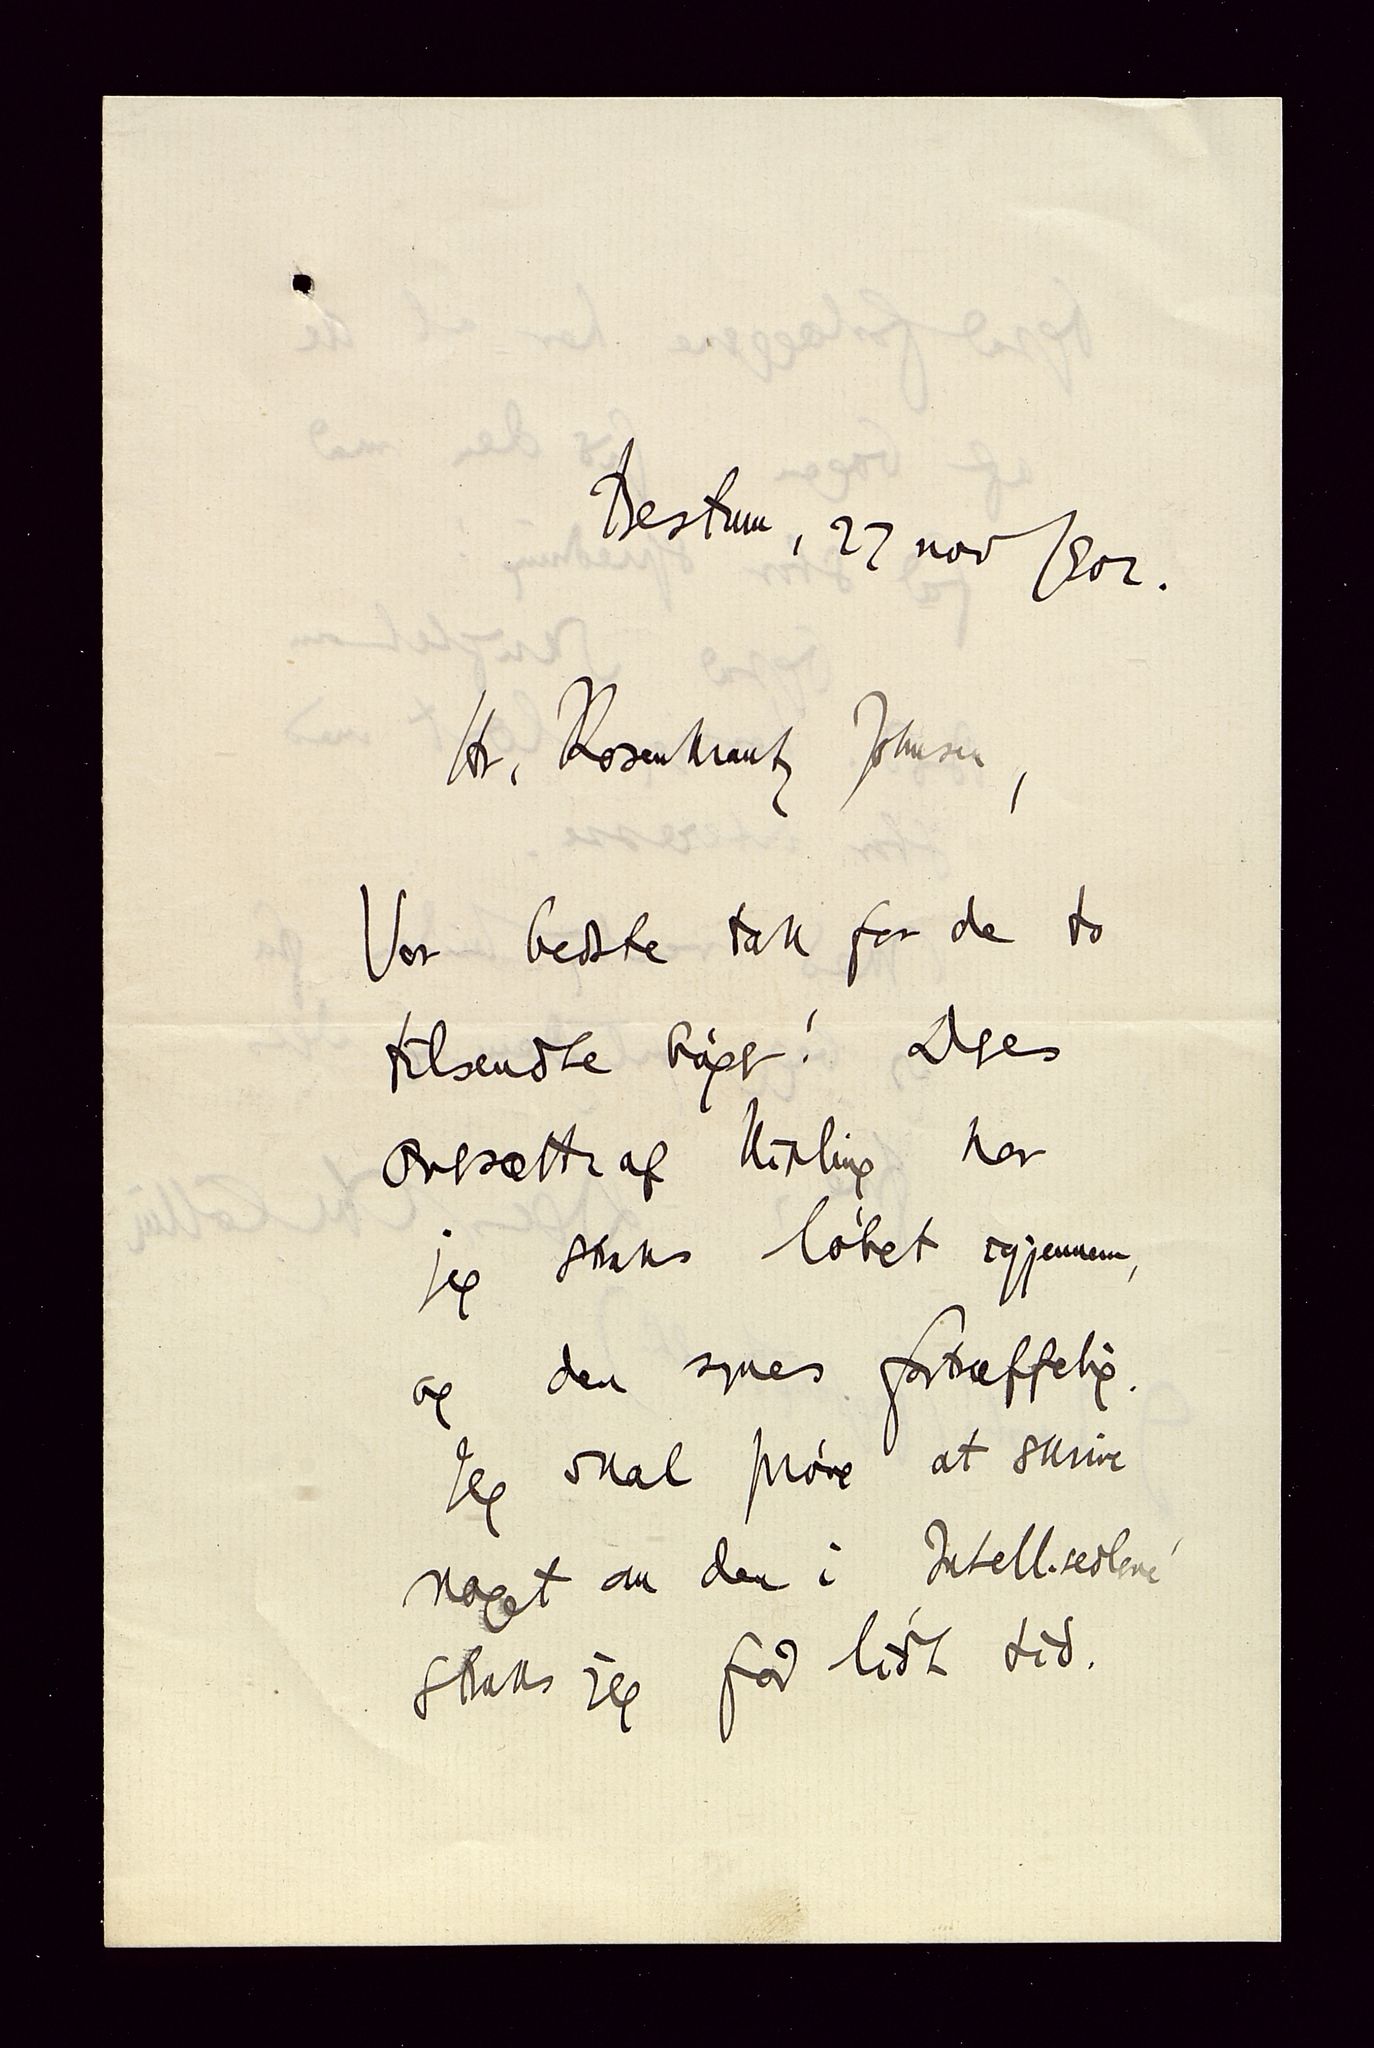 Bestum, 27 nov 1902.
Hr. Rosenkrantz Johnsen,
Vor bedste tak for de to
tilsendte bøger! Deres
oversættr af Kipling har
jeg straks løbet igjennem,
og den synes fortræffelig.
Jeg skal prøve at skrive
noget om den i Intell.sedlerne
straks jeg får lidt tid.